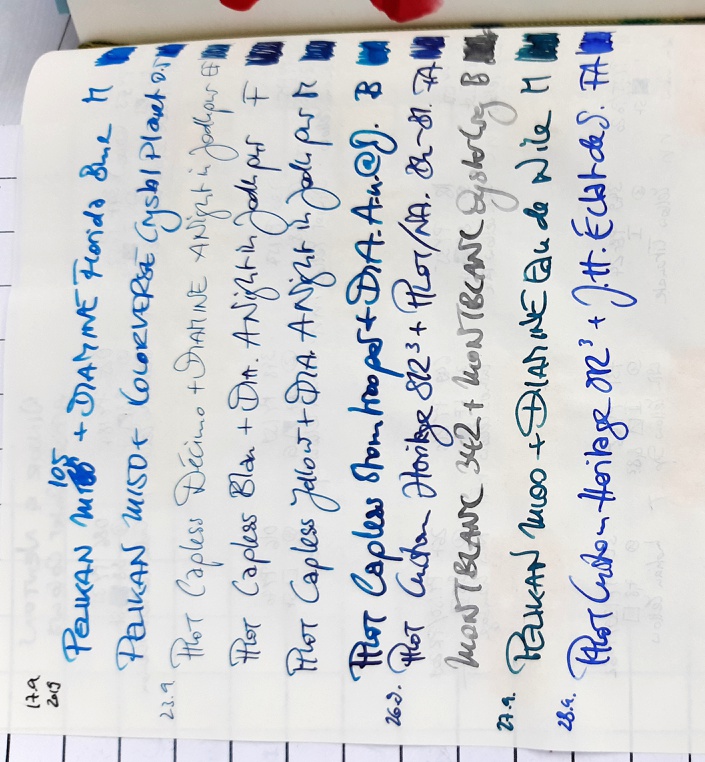 17.9 2019
PELIKAN M105 + DIAMINE Florida Blue M
PELIKAN M150 + COLORVERSE Crystal Planet 0.5
23.9 PILOT Capless Décimo + DIAMINE A Night in Jodhpur EF
PILOT Capless Blau + DIA. A Night in Jodhpur F
PILOT Capless Yellow + DIA. A Night in Jodhpur M
PILOT Capless Stormtrooper + DIA. B
26.9. PILOT Custom Heritage + PILOT/NA. FA
MONTBLANC 342 + MONTBLANC Oystergrey B
27.9. PELIKAN M100 + DIAMINE Eau de Nile M
28.9. PILOT Custom Heritage + J.H. Éclat de S. FA